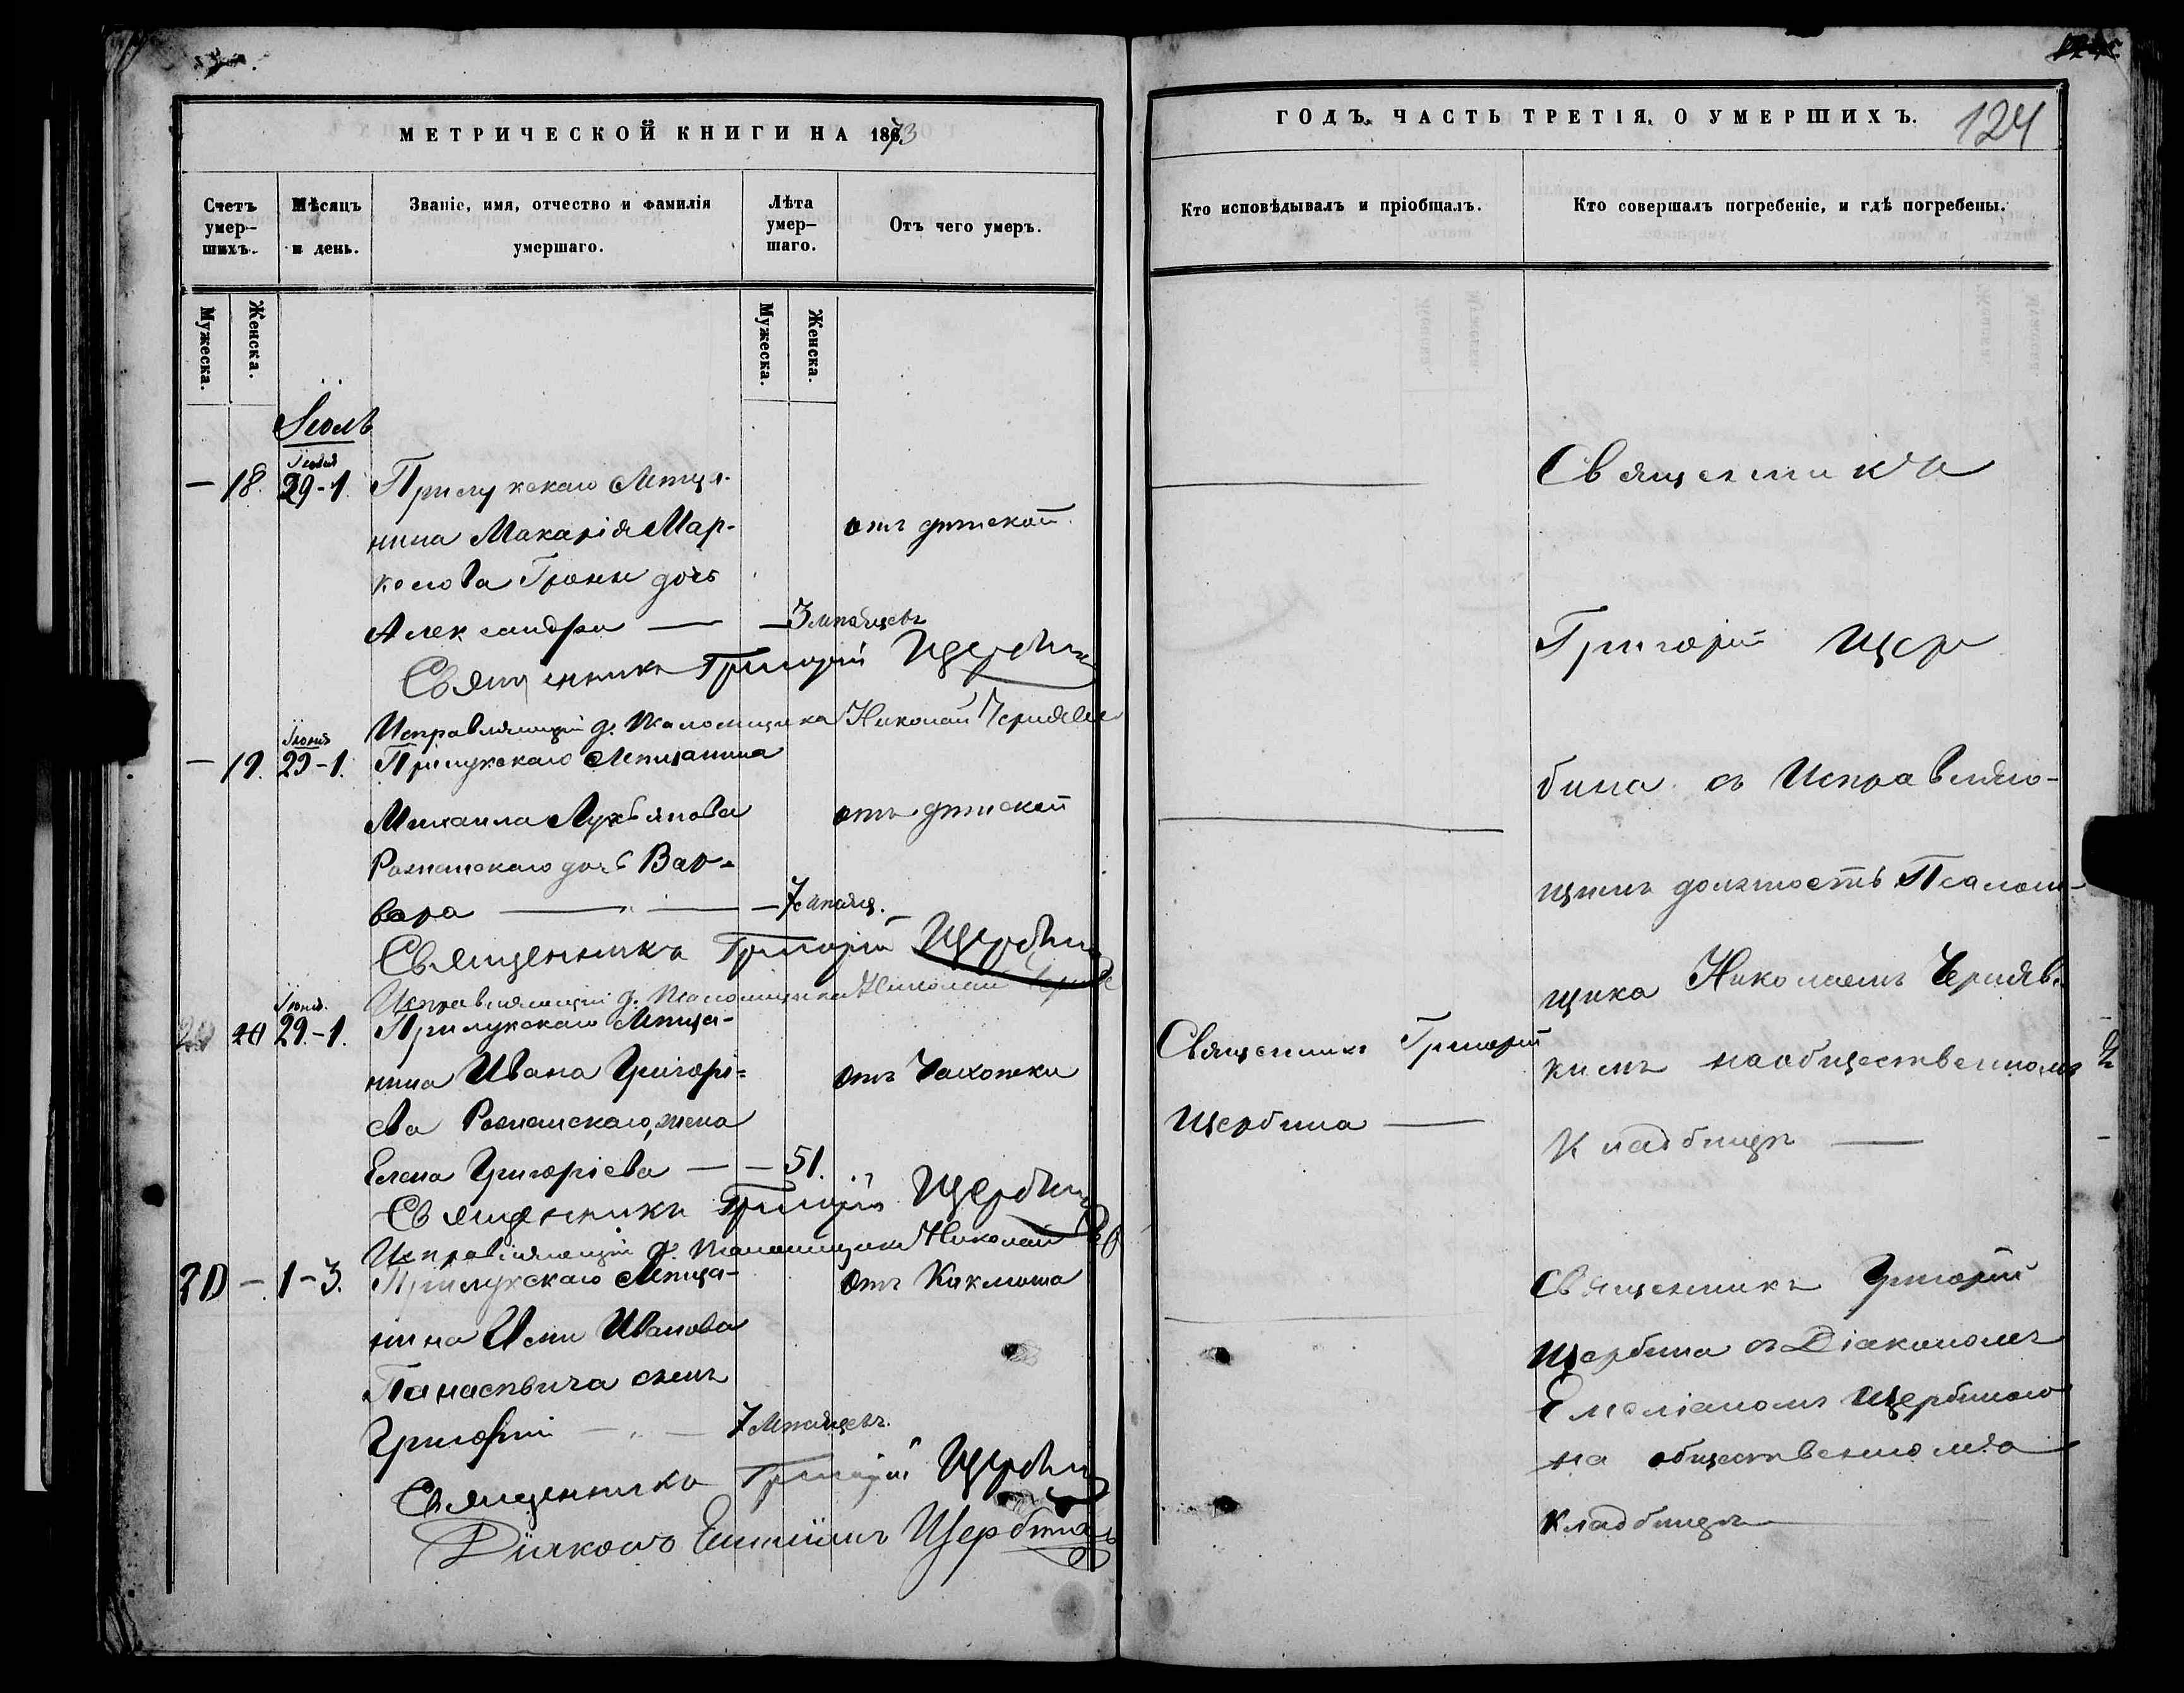 МЕТРИЧЕСКОЙ КНИГИ НА 1873
Счетъ умер-шихъ.
Мѣсяцъ и день.
Званіе, имя, отчество и фамилія умершаго.
Лѣта умер-шаго.
Отъ чего умеръ.
Мужеска.
Женска.
Мужеска.
Женска.
Іюль
Іюня
— 18. 29-1. Прилукскаго Мѣща-
нина Макарія Мар-
отъ дѣтской
дочь
Александра — — 3 мѣсяцевъ
Священникъ Григорій Щербина
Исправляющій д. Псаломщика Николай Чернявск
Іюня
— 19. 29-1. Прилукскаго Мѣщанина
Михаила Лукьянова
отъ дѣтской
дочь Вар-
вара — — — 7 мѣсяц.
Священникъ Григорій Щербина
Исправляющій д. Псаломщика Николай
Іюня.
20 29.-1. Прилукскаго Мѣща-
нина Ивана Григорі-
отъ Чахотки
ева жена
Елена Григоріева — — 51.
Священникъ Григорій Щербина
Исправляющій д. Псаломщика Николай
20 — 1-3. Прилукскаго Мѣща-
отъ Кихлюша
нина Иванова
сынъ
Григорій — 7 Мѣсяцевъ.
Священникъ Григорій Щербина
Діаконъ Емиліанъ Щербина
ГОДЪ. ЧАСТЬ ТРЕТІЯ, О УМЕРШИХЪ.
124
Кто исповѣдывалъ и пріобщалъ.
Кто совершалъ погребеніе, и гдѣ погребены.
Священникъ
Григорій Щер
бина съ Исправляю-
щимъ должность Псалом-
щика Николаемъ Чернявс
кимъ на общественномъ
Кладбищѣ —
Священникъ Григорій
Щербина —
Священникъ Григорій
Щербина съ Діакономъ
Емеліаномъ Щербиною
на общественномъ
Кладбищѣ